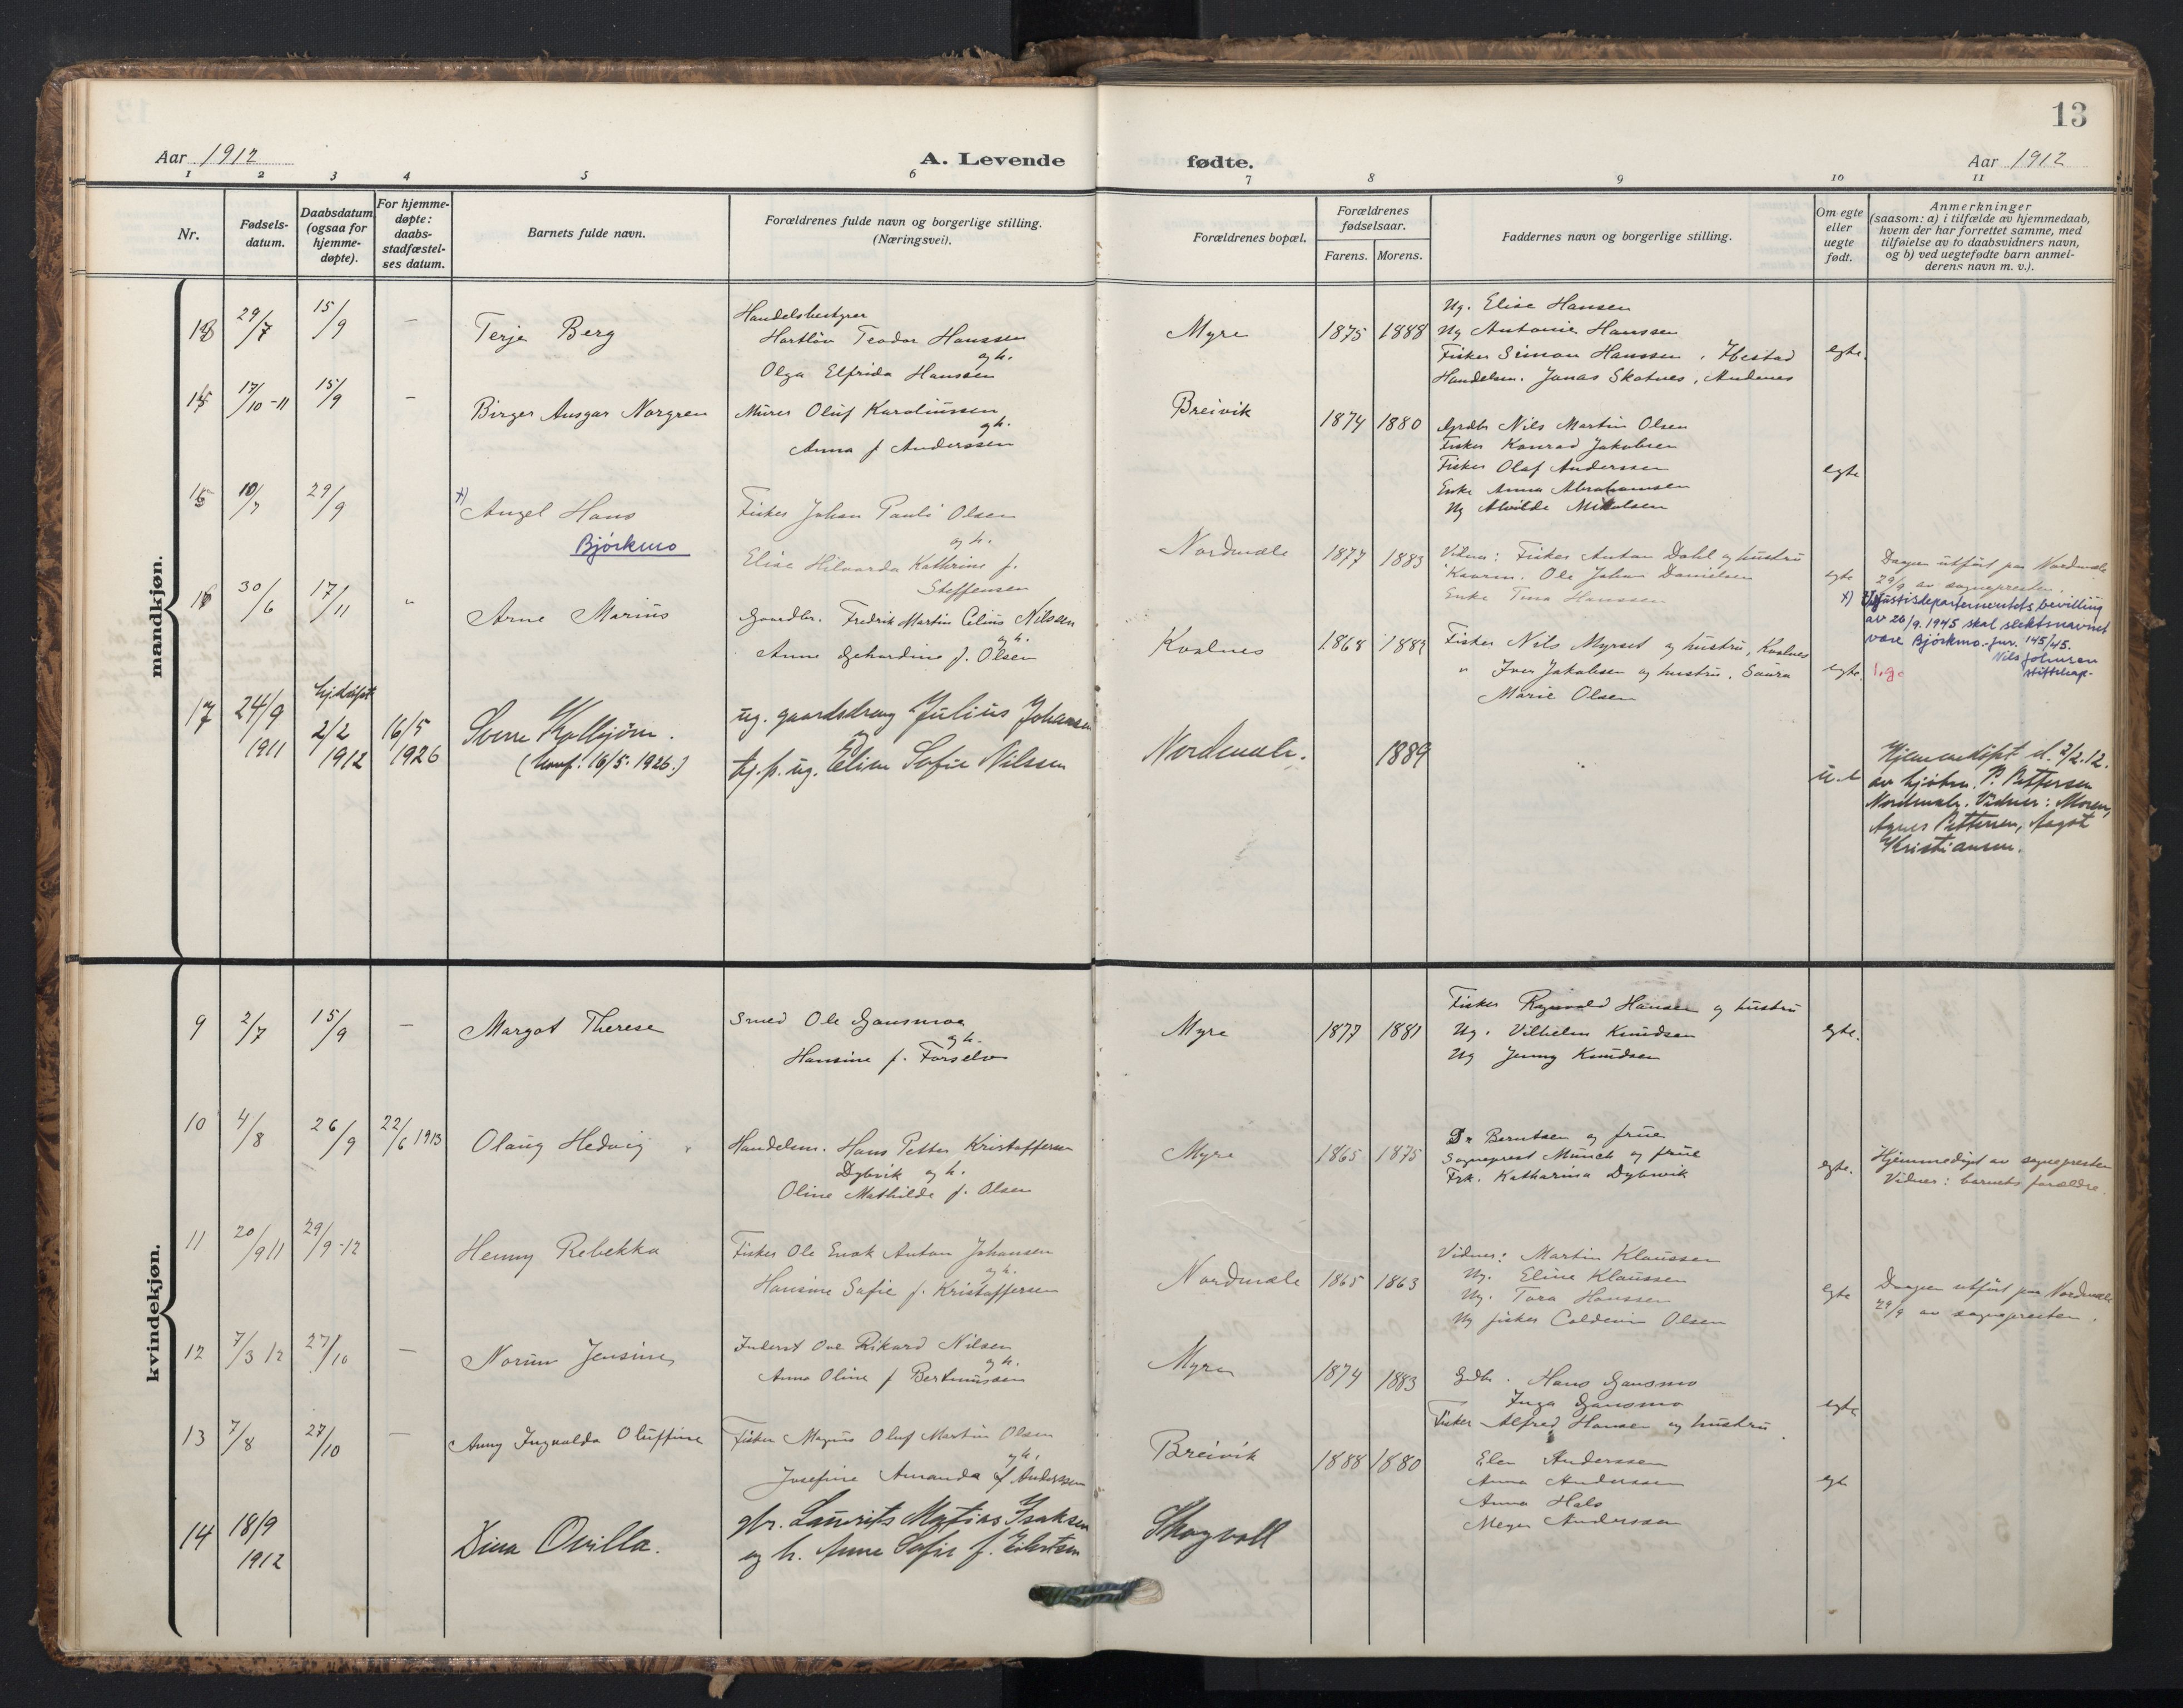 13
Aar 1912
A. Levende
fødte.
Aar 1912
1 2 3 4 5 6 7 8 9 10 11
Nr.
Fødsels-
datum.
Daabsdatum
(ogsaa for
hjemme-
døpte).
For hjemme-
døpte:
daabs-
stadfæstel-
ses datum.
Barnets fulde navn.
Forældrenes fulde navn og borgerlige stilling.
(Næringsvei).
Forældrenes bopæl.
Forældrenes
fødselsaar.
Farens. Morens.
Faddernes navn og borgerlige stilling.
Om egte
eller
uegte
født.
Anmerkninger
(saasom: a) i tilfælde av hjemmedaab,
hvem der har forrettet samme, med
tilføielse av to daabsvidners navn,
og b) ved uegtefødte barn anmel-
derens navn m. v.).
mandkjøn.
29/7 15/9 —
Terje Berg
Handelsbestyrer
Hartløv Teodor Hanssen
og h.
Olga Elfrida Hanssen
Myre 1875 1888
Ug. Elise Hansen
Ug Antonie Hanssen
Fisker Simon Hanssen, Ibestad
Handelsm. Jonas Skatnes, Andenes
egte.
17/10-11 15/9 —
Birger Ansgar Norgren
Murer Oluf Karoliussen
og h.
Anna f Anderssen
Breivik 1874 1880
Grdbr Nils Martin Olsen
Fisker Konrad Jakobsen
Fisker Olaf Anderssen
Enke Anna Abrahamsen
Ug Alvilde Mikalsen
egte
15 10/7 29/9
+) Angel Hans
Bjørkmo
Fisker Johan Pauli Olsen
og h.
Elise Hilvarda Kathrine f.
Steffensen
Nordmæle 1877 1883
Vidner: Fisker Anton Dahl og hustru
Ole Johan Danielsen
Enke Tina Hanssen
egte
Daapen utført paa Nordmæle
29/9 av sognepresten.
+) Justisdepartementets bevilling
av 26/9.1945 skal slektsnavnet
være Bjørkmo. Jnr. 145/45.
Nils Johnsen
16 30/6 17/11 "
Arne Marius
Gaardbr. Fredrik Martin Celius Nilssen
og h.
Anne Gehardine f. Olsen
Kvalnes 1868
Fisker Nils Myrset og hustru, Kvalnes
" Iver Jakobsen og hustru, Saura
Marie Olsen
egte.
17 24/9 1911
hjdøpt
2/2 1912
16/5 1926
Sverre Kolbjørn.
(konf. 16/5. 1926.)
ug. gaardsdreng Julius Johansen
tj. p. ug. Elise Sofie Nilssen
Nordmæle. 1889
u.e
Hjemmedøpt d. 2/2.12.
P. Pettersen
Nordmæle. Vidner: Moren,
Agnes Pettersen, Aagot
Kristiansen.
kvindekjøn.
9 2/7 15/9 —
Margot Therese
Smed Ole Gausmoe
og h.
Hansine f. Forselv
Myre 1877 1881
Fisker Ragnvald Hansen og hustru
Ug. Vilhelm Knudsen
Ug Jenny Knudsen
egte.
10 4/8 26/9 22/6 1913
Olaug Hedvig
Handelsm. Hans Petter Kristoffersen
Dybvik og h.
Oline Mathilde f. Olsen
Myre 1865 1875
Dr Berntsen og frue
Sogneprest Münch og frue
Frk. Katharina Dybwik
egte.
Hjemmedøpt av sognepresten
Vidner: barnets forældre.
11 20/9 11 29/9-12
Henny Rebekka
Fisker Ole Enok Anton Johansen
og h.
Hansine Sofie f. Kristoffersen
Nordmæle 1865 1863
Vidner: Martin Klaussen
Ug. Eline Klaussen
Ug. Tora Hanssen
Ug fisker Caldevin Olsen
egte
Daapen utført paa Nordmæle
29/9 av sognepresten.
12 7/3 12 27/10 —
Norunn Jensine
Inderst Ove Rikard Nilsen
og h.
Anna Oline f Bertinussen
Myre 1874 1883
Gdbr. Hans Gausmo
Inga Gausmo
Fisker Alfred Hansen og hustru.
egte
13 7/8 27/10 —
Anny Ingvalda Oluffine
Fisker Magnus Oluf Martin Olsen
og h.
Josefine Amanda f Anderssen
Breivik 1888 1880
Elen Anderssen
Anna Anderssen
Anna Hals
Meyer Anderssen
egte
14 18/9 1912
Dina Ovilla.
gbr. Laurits Matias Isaksen
og h. Anne Sofie f. Eilertsen
Skogvoll